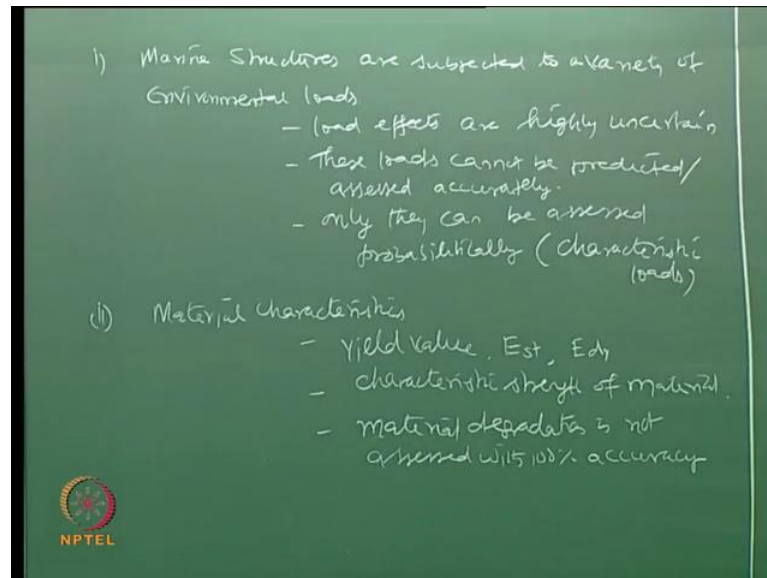 i) Marine Structures are subjected to a variety of
Environmental loads
- load effects are highly uncertain
- These loads cannot be predicted/
assessed accurately.
- only they can be assessed
probabilitically (characteristic
loads)
(ii) Material characteristics
- Yield value, Est, Edy
- characteristic strength of material.
- material degradation is not
assessed with 100% accuracy
NPTEL